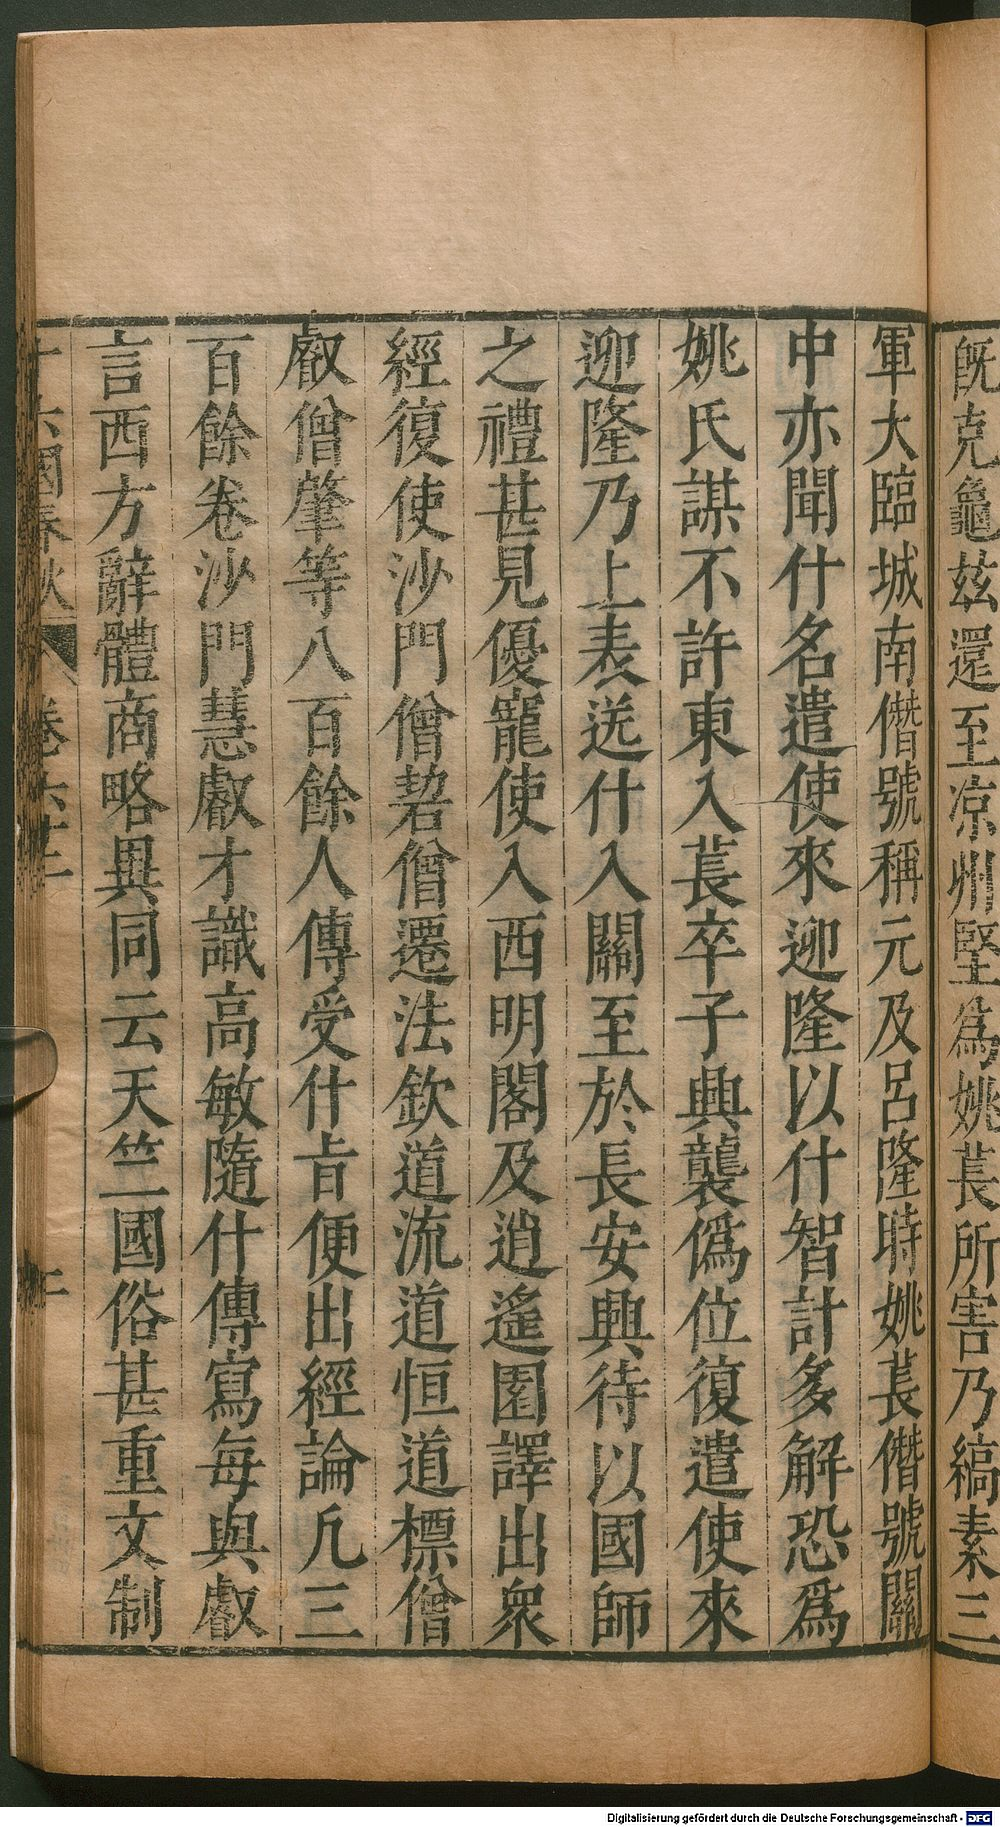 既克龜茲還至涼州堅為姚萇所害乃縞素三
軍大臨城南僭號稱元及呂隆時姚萇僭號關
中亦聞什名遣使來迎隆以什智計多解恐為
姚氏謀不許東入萇卒子興襲偽位復遣使來
迎隆乃上表送什入關至於長安興待以國師
之禮甚見優寵使入西明閣及逍遙園譯出衆
經復使沙門僧䂮僧遷法欽道流道恒道標僧
叡僧肇等八百餘人傳受什旨便出經論凡三
百餘卷沙門慧叡才識高敏隨什傳寫每與叡
言西方辭體商略異同云天竺國俗甚重文制
十六國春秋 卷六十二 十
Digitalisierung gefördert durch die Deutsche Forschungsgemeinschaft - DFG